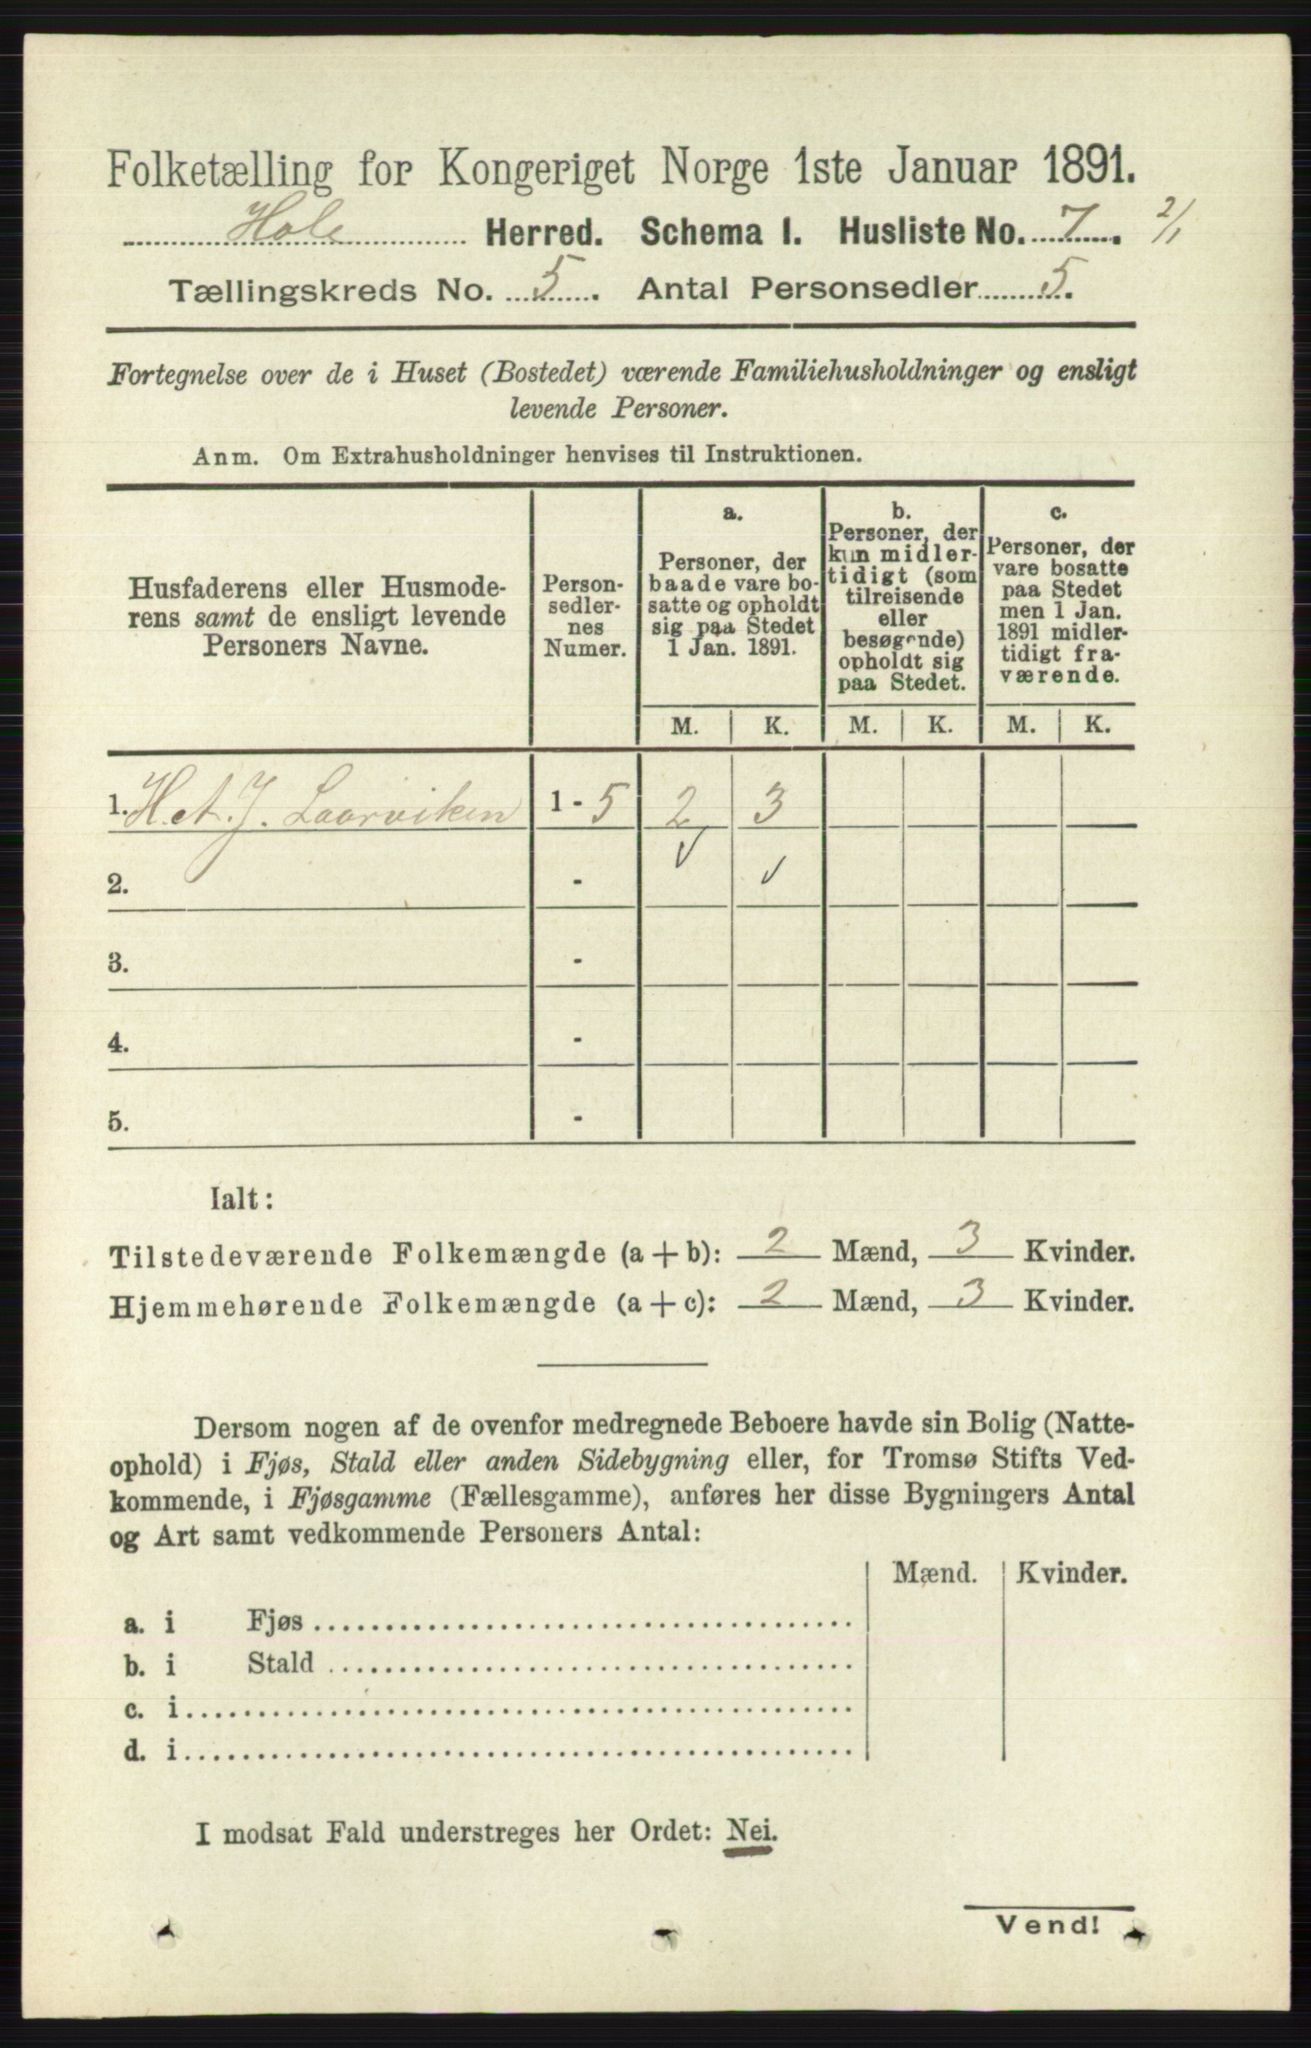 Folketælling for Kongeriget Norge 1ste Januar 1891.
Hole Herred. Schema I. Husliste No. 7. 2/1
Tællingskreds No. 5. Antal Personsedler 5.
Fortegnelse over de i Huset (Bostedet) værende Familiehusholdninger og ensligt
levende Personer.
Anm. Om Extrahusholdninger henvises til Instruktionen.
Husfaderens eller Husmode-
rens samt de ensligt levende
Personers Navne.
Person-
sedler-
nes
Numer.
a.
Personer, der
baade vare bo-
satte og opholdt
sig paa Stedet
1 Jan. 1891.
b.
Personer, der
kun midler-
tidigt (som
tilreisende
eller
besøgende)
opholdt sig
paa Stedet.
c.
Personer, der
vare bosatte
paa Stedet
men 1 Jan.
1891 midler-
tidigt fra-
værende.
M. K. M. K. M. K.
1. H. A. J. Laarviken 1 - 5 2 3
2. -
3. -
4. -
5. -
Ialt:
Tilstedeværende Folkemængde (a + b): 2 Mænd, 3 Kvinder.
Hjemmehørende Folkemængde (a + c): 2 Mænd, 3 Kvinder.
Dersom nogen af de ovenfor medregnede Beboere havde sin Bolig (Natte-
ophold) i Fjøs, Stald eller anden Sidebygning eller, for Tromsø Stifts Ved-
kommende, i Fjøsgamme (Fællesgamme), anføres her disse Bygningers Antal
og Art samt vedkommende Personers Antal:
Mænd. Kvinder.
a. i Fjøs
b. i Stald
c. i
d. i
I modsat Fald understreges her Ordet: Nei.
Vend!